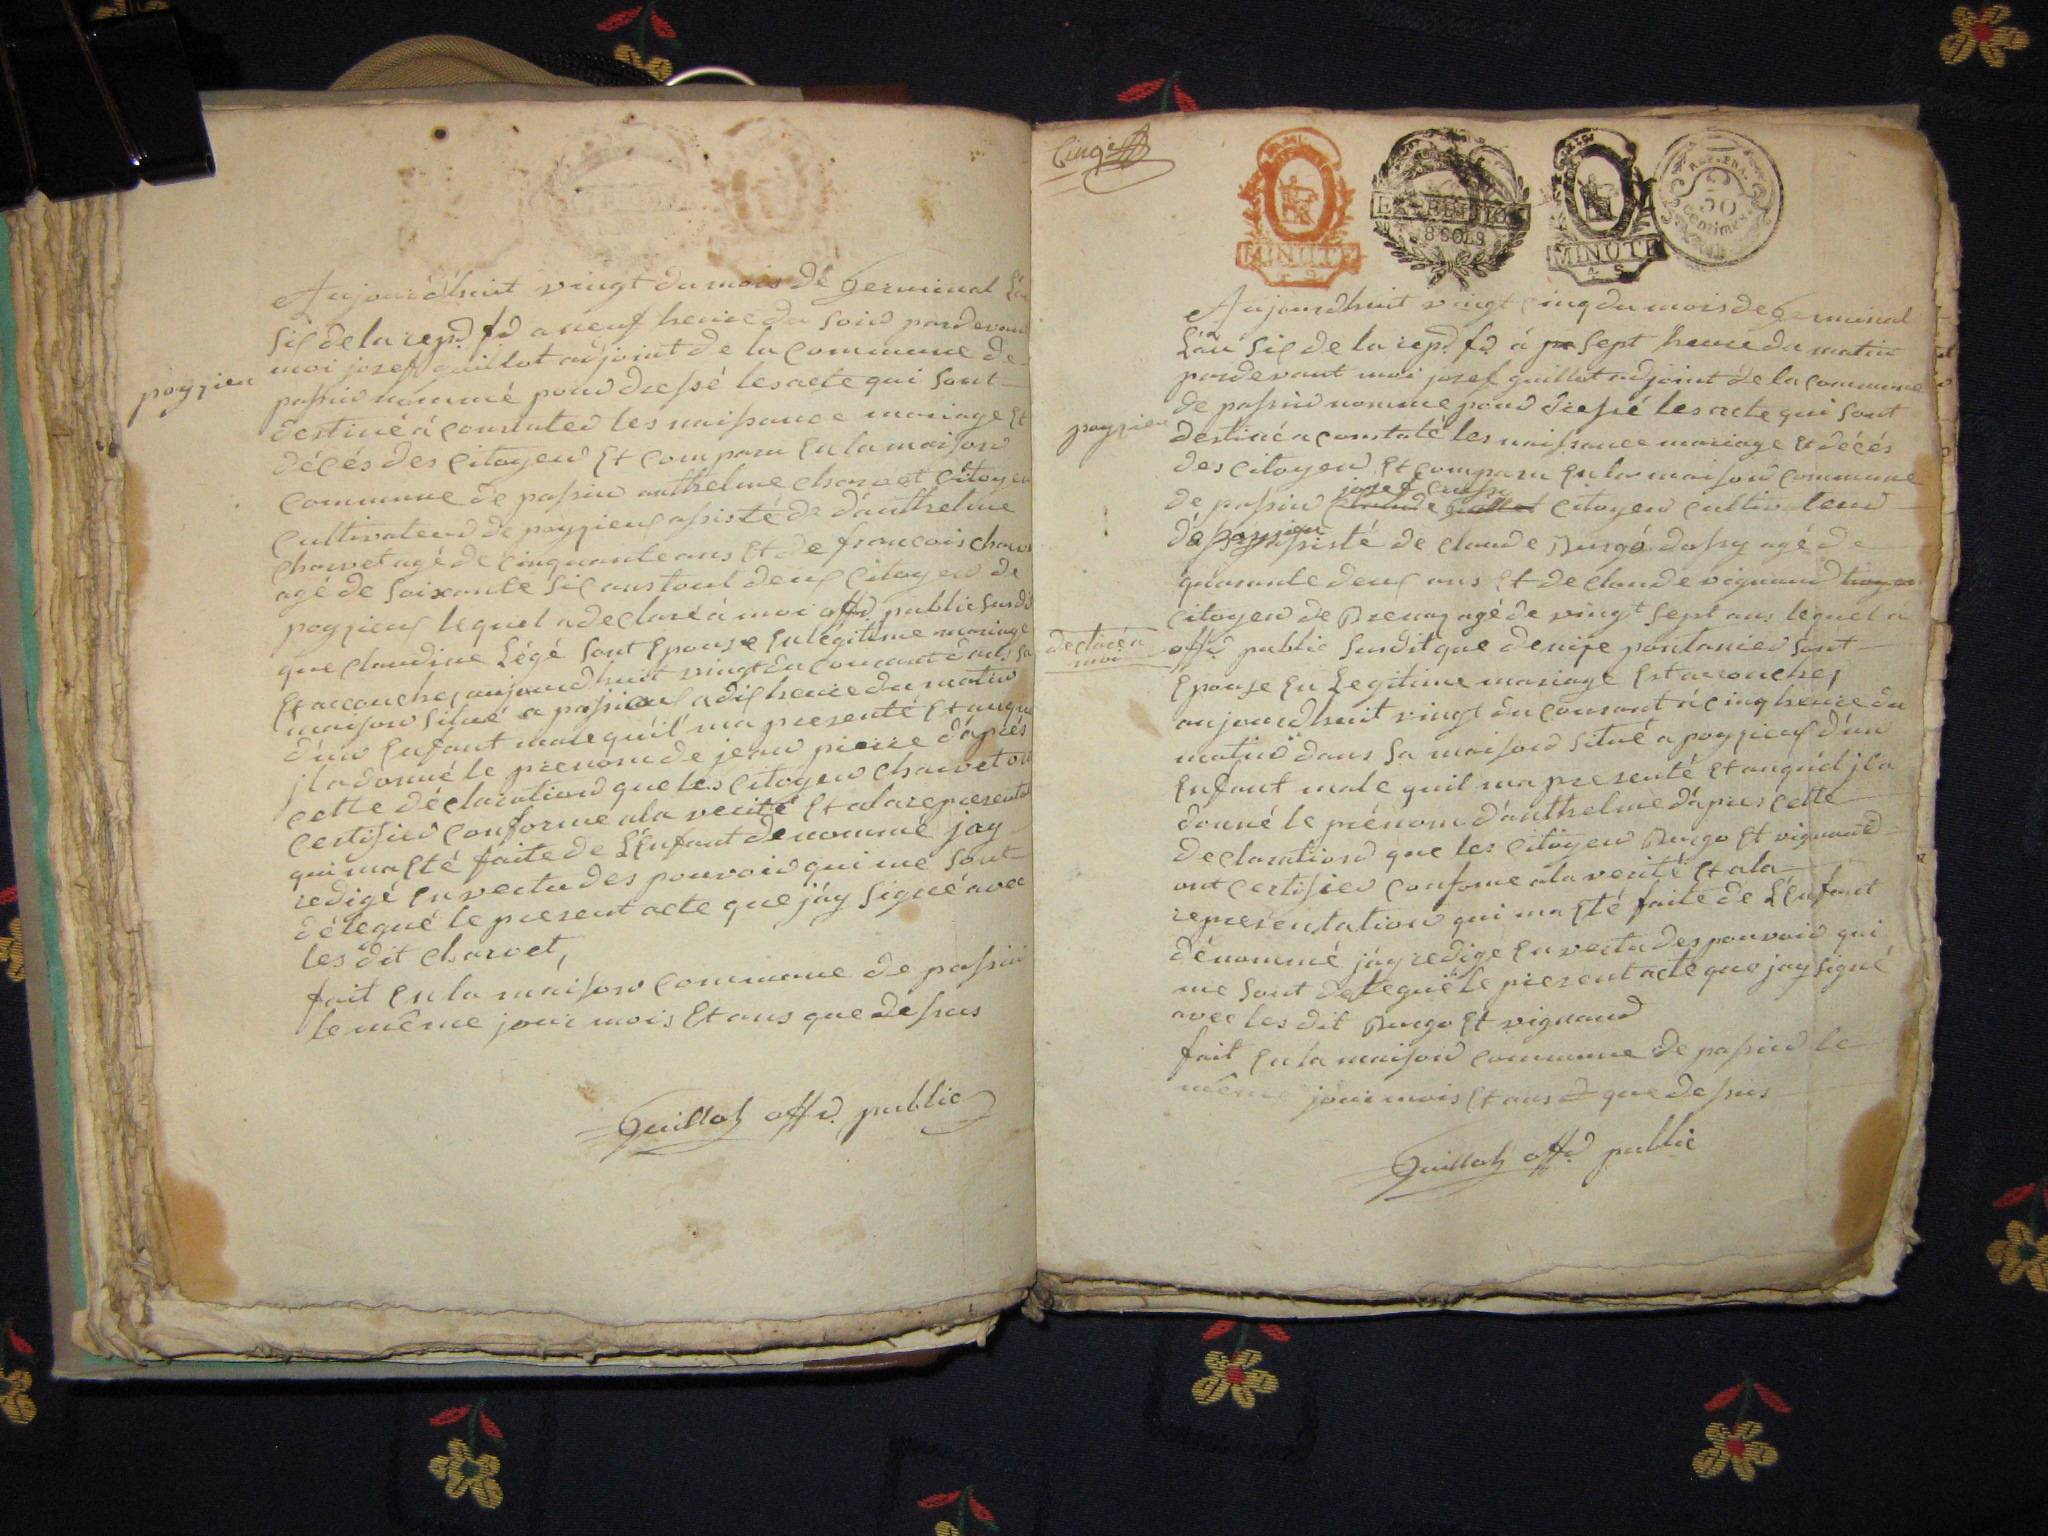 poyzieu
Aujourdhuit vingt du mois de germinal L'an
Six de la rep.e fr a neuf heure du soir pardevant
moi josef guillot adjoint de la Commune de
passin nommé pour dressé les acte qui sont
destiné à constater les naissance mariage Et
décés des Citoyen Et comparu En la maison
Commune de passin anthelme charvet Citoyen
Cultivateur de poyzieux assisté de d'anthelme
charvet agé de cinquante ans Et de francois charvet
agé de soixante six ans tout deux Citoyen de
poyzieux lequel a declaré à moi offr public susdit
que claudine Légé sont Epouze En légitime mariage
Et accouche, aujourdhuit vingt du courant dans sa
maison situé a poysieux a dix heure du matin
d'un Enfant male qu'il ma presenté Et auquel
jl a donné le prenom de jean pierre d'après
cette déclaration que les Citoyen charvet ont
certifier conforme ala verité Et ala representation
qui ma Eté faite de L'Enfant denommé jay
redigé En vertu des pouvoir qui me sont
délegué le present acte que j'ay signé avec
les dit charvet,
fait En la maison commune de passin
le même jour mois Et ans que dessus
Guillot offr. public
Cinq
MINUTE
EXPEDITION
8 SOLS
MINUTE
4 S
REP. FRA.
50
centimes
poyzieu
Aujourdhuit vingt cinq du mois de germinal
L'an Six de la rep. fr. á sept heure du matin
pardevant moi josef guillot adjoint de la commune
de passin nomme pour dressé les acte qui sont
destiné a constaté les naissance mariage Et décés
des Citoyen Et comparu En la maison commune
de passin josef Citoyen cultivateur
de poyzieu assisté de claude Burgo dossy agé de
quarante deux ans Et de claude vignaud
citoyen de Brenaz agé de vingt sept ans lequel a
declaré a
moi
offr. public susdit que denise pontanier sont
Epouze En Legitime mariage Est accouche,
aujourdhuit vingt du courant à cinq heure du
matin dans sa maison situé a poyzieux d'un
Enfant male quil ma presenté Et auquel jl a
donné le prénom d'anthelme d'apres cette
declaration que les Citoyen Burgo Et vignaud
ont certifier conforme ala verité Et ala
representation qui ma Eté faite de L'Enfant
dénommé j'ay redige En vertu des pouvoir qui
me sont delegué le present acte que jay signé
avec les dit Burgo Et vignaud
fait En la maison commune de passin le
même jour mois Et ans que dessus
Guillot offr. public